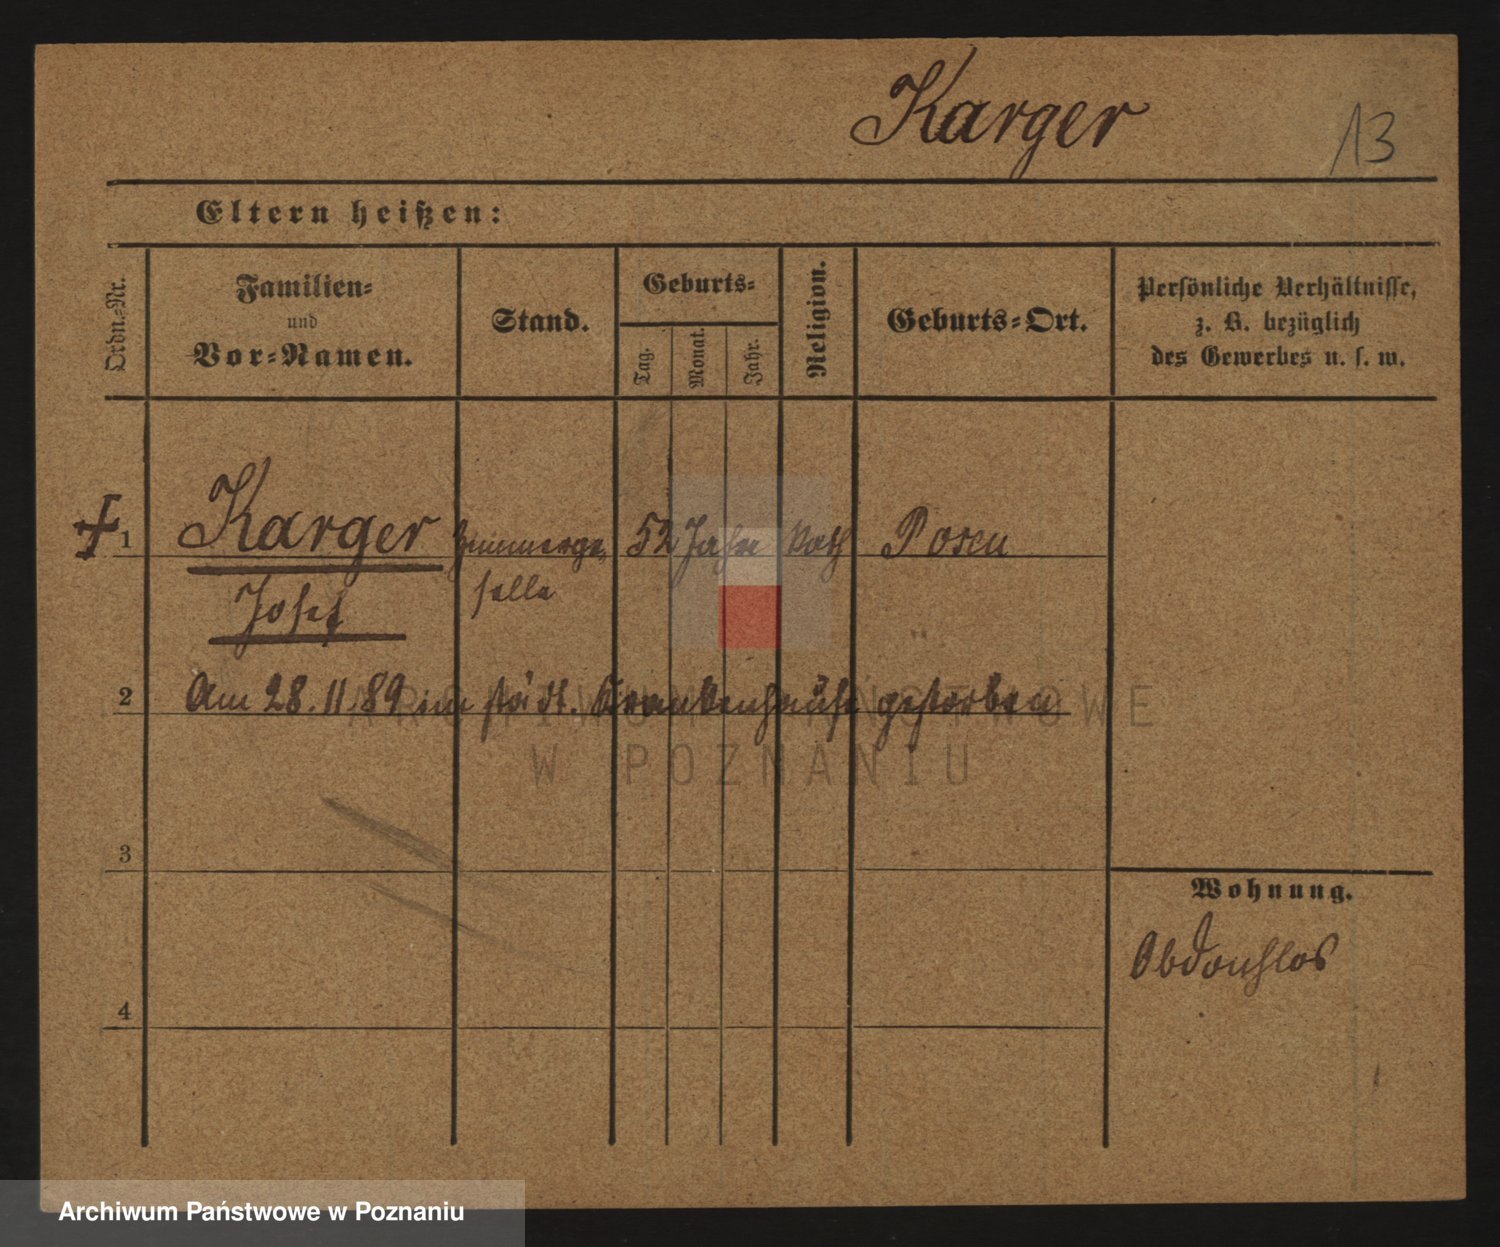 Karger
13
Eltern heißen:
Ordn.-Nr.
Familien-
und
Vor-Namen.
Stand.
Geburts-
Tag.
Monat.
Jahr.
Religion.
Geburts-Ort.
Persönliche Verhältnisse,
z. B. bezüglich
des Gewerbes u. s. w.
1 Karger Zimmerge- 52 Jahre kath Posen
Josef selle
2 Am 28.11.89 im städt. Krankenhause gestorben
3
Wohnung.
Obdachlos
4
ARCHIWUM PAŃSTWOWE
W POZNANIU
Archiwum Państwowe w Poznaniu